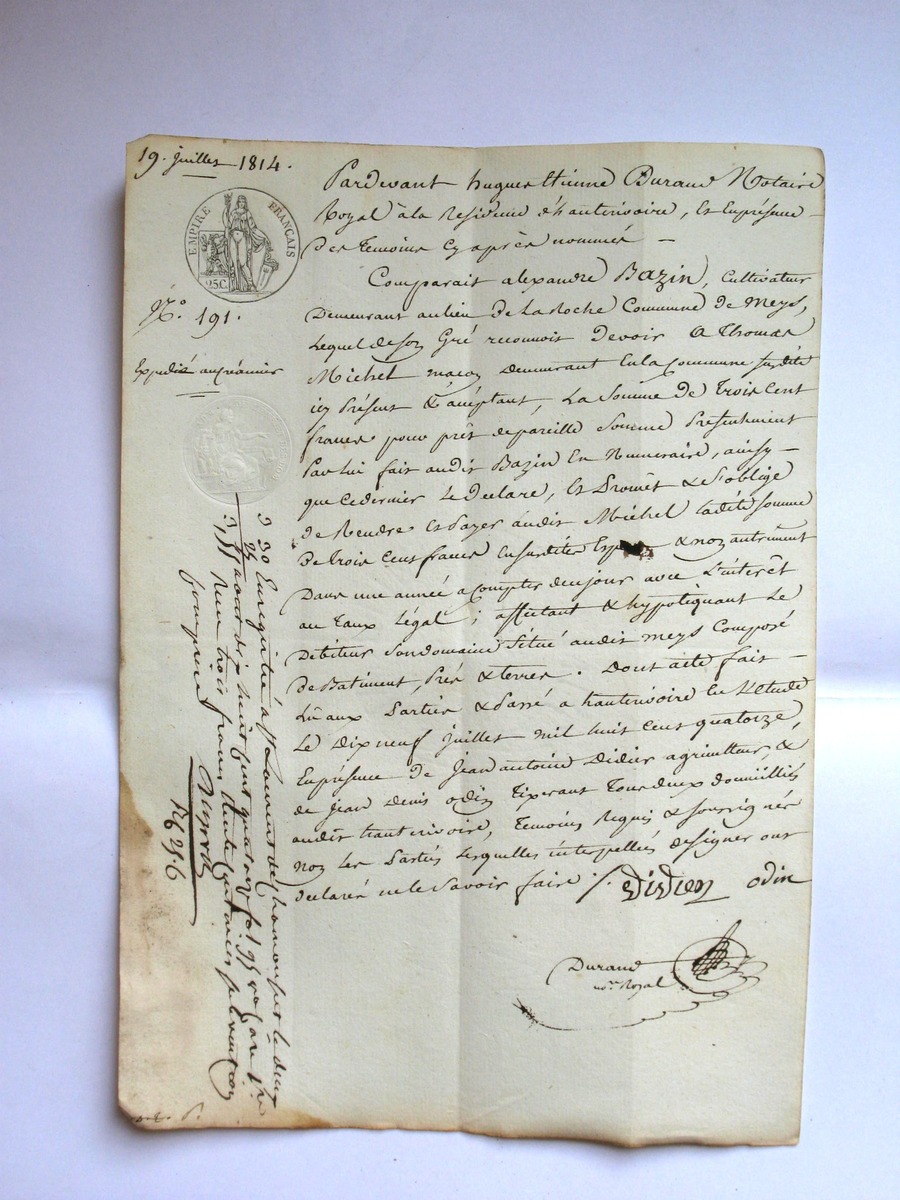 19. juillet 1814.
EMPIRE FRANÇAIS
25 C.
N.o 191.
Expedié au créancier
Pardevant hugues Etienne Durand Notaire
Royal à la Residence d'hauterivoire, Et En présence
des temoins Cy après nommés
Comparait alexandre Bazin, Cultivateur
Demeurant au lieu de La Roche Commune de Meys,
Lequel de son Gré reconnoit devoir a Thomas
Michel maçon demeurant En la Commune susdite
icy Présent & acceptant, La Somme de Trois Cent
francs pour prêt de pareille Somme Présentement
Par lui fait audit Bazin En Numeraire, ainsy
que Ce dernier Le declare, Et Promêt & s'oblige
de Rendre Et Payer audit Michel ladite somme
De trois Cent francs En susdites & non autrement
Dans une année a compter de ce jour avec L'interêt
au Taux Légal ; affectant & hypotequant Le
Débiteur Son domaine Situé audit Meys Composé
de Batiment, Prés & terres. Dont acte fait
Lû aux Parties & Passé a hauterivoire En L'Etude
Le Dix neuf juillet mil huit cent quatorze,
En présence de Jean antoine Didier agriculteur, &
de Jean denis odin Tixerant Tous deux domiciliés
audit hauterivoire, Temoins Requis & soussignés
non Les Parties Lesquelles interpellées de signer ont
déclaré ne le Savoir faire.
Didier odin
Durand
no.re Royal
Enregistré à St Laurent de Chamousset le deux
août mil huit Cent quatorze fo 195
Reçu trois francs trente centimes subvention
comprise